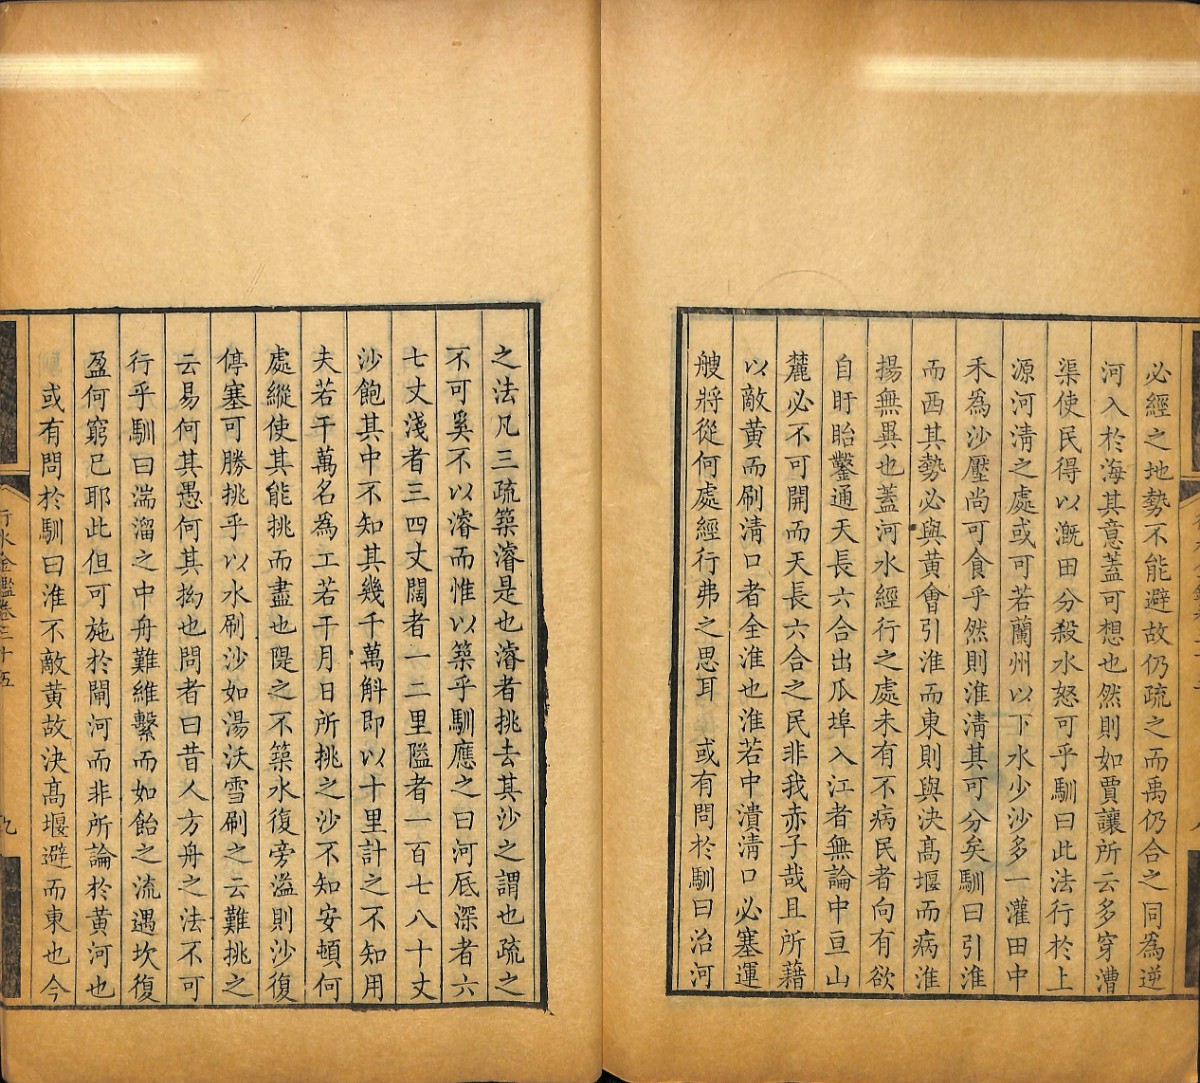 必經之地勢不能避故仍疏之而禹仍合之同為逆
河入於海其意蓋可想也然則如賈讓所云多穿漕
渠使民得以漑田分殺水怒可乎馴曰此法行於上
源河淸之處或可若蘭州以下水少沙多一灌田中
禾為沙壓尚可食乎然則淮淸其可分矣馴曰引淮
而西其勢必與黃會引淮而東則與決高堰而病淮
揚無異也蓋河水經行之處未有不病民者向有欲
自盱眙鑿通天長六合出瓜埠入江者無論中亘山
麓必不可開而天長六合之民非我赤子哉且所藉
以敵黃而刷淸口者全淮也淮若中潰淸口必塞運
艘將從何處經行弗之思耳　或有問於馴曰治河
之法凡三疏築濬是也濬者挑去其沙之謂也疏之
不可奚不以濬而惟以築乎馴應之曰河底深者六
七丈淺者三四丈闊者一二里隘者一百七八十丈
沙飽其中不知其幾千萬斛即以十里計之不知用
夫若干萬名為工若干月日所挑之沙不知安頓何
處縱使其能挑而盡也隄之不築水復旁溢則沙復
停塞可勝挑乎以水刷沙如湯沃雪刷之云難挑之
云易何其愚何其拗也問者曰昔人方舟之法不可
行乎馴曰湍溜之中舟難維繫而如飴之流遇坎復
盈何窮已耶此但可施於閘河而非所論於黃河也
或有問於馴曰淮不敵黃故決高堰避而東也今
行水金鑑卷三十五
九